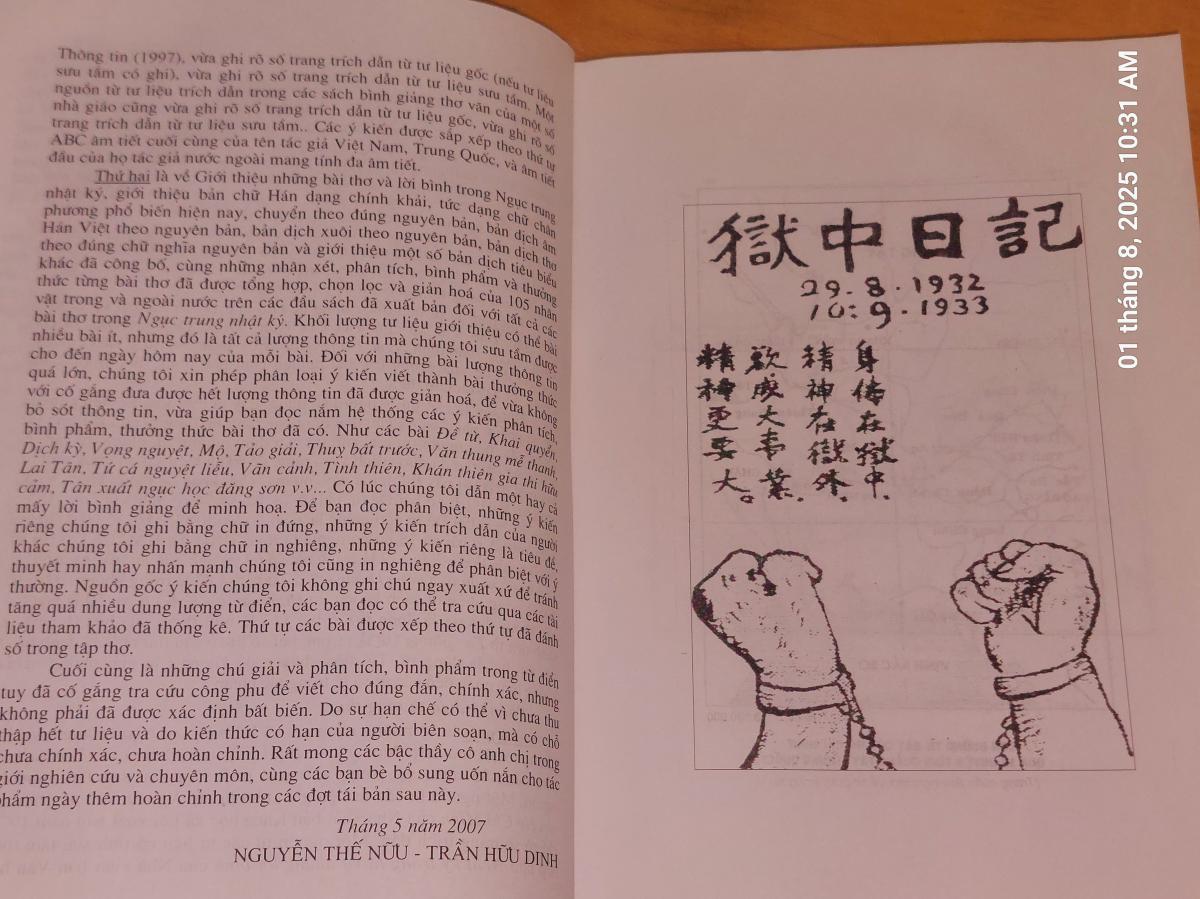 Thông tin (1997), vừa ghi rõ số trang trích dẫn từ tư liệu gốc (nếu tư liệu
sưu tầm có ghi), vừa ghi rõ số trang trích dẫn từ tư liệu sưu tầm. Một
nguồn từ tư liệu trích dẫn trong các sách bình giảng thơ văn của một số
nhà giáo cũng vừa ghi rõ số trang trích dẫn từ tư liệu gốc, vừa ghi rõ số
trang trích dẫn từ tư liệu sưu tầm.. Các ý kiến được sắp xếp theo thứ tự
ABC âm tiết cuối cùng của tên tác giả Việt Nam, Trung Quốc, và âm tiết
đầu của họ tác giả nước ngoài mang tính đa âm tiết.
Thứ hai là về Giới thiệu những bài thơ và lời bình trong Ngục trung
nhật ký, giới thiệu bản chữ Hán dạng chính khải, tức dạng chữ chân
phương phổ biến hiện nay, chuyển theo đúng nguyên bản, bản dịch âm
Hán Việt theo nguyên bản, bản dịch xuôi theo nguyên bản, bản dịch thơ
theo đúng chữ nghĩa nguyên bản và giới thiệu một số bản dịch tiêu biểu
khác đã công bố, cùng những nhận xét, phân tích, bình phẩm và thưởng
thức từng bài thơ đã được tổng hợp, chọn lọc và giản hoá của 105 nhân
vật trong và ngoài nước trên các đầu sách đã xuất bản đối với tất cả các
bài thơ trong Ngục trung nhật ký. Khối lượng tư liệu giới thiệu có thể bài
nhiều bài ít, nhưng đó là tất cả lượng thông tin mà chúng tôi sưu tầm được
cho đến ngày hôm nay của mỗi bài. Đối với những bài lượng thông tin
quá lớn, chúng tôi xin phép phân loại ý kiến viết thành bài thưởng thức
với cố gắng đưa được hết lượng thông tin đã được giản hoá, để vừa không
bỏ sót thông tin, vừa giúp bạn đọc nắm hệ thống các ý kiến phân tích,
bình phẩm, thưởng thức bài thơ đã có. Như các bài Đề từ, Khai quyển,
Dịch kỳ, Vọng nguyệt, Mộ, Tảo giải, Thuỵ bất trước, Văn thung mễ thanh,
Lai Tân, Tứ cá nguyệt liễu, Vãn cảnh, Tình thiên, Khán thiên gia thi hữu
cảm, Tân xuất ngục học đăng sơn v.v... Có lúc chúng tôi dẫn một hay cả
mấy lời bình giảng để minh hoạ. Để bạn đọc phân biệt, những ý kiến
riêng chúng tôi ghi bằng chữ in đứng, những ý kiến trích dẫn của người
khác chúng tôi ghi bằng chữ in nghiêng, những ý kiến riêng là tiêu đề,
thuyết minh hay nhấn mạnh chúng tôi cũng in nghiêng để phân biệt với ý
thường. Nguồn gốc ý kiến chúng tôi không ghi chú ngay xuất xứ để tránh
tăng quá nhiều dung lượng từ điển, các bạn đọc có thể tra cứu qua các tài
liệu tham khảo đã thống kê. Thứ tự các bài được xếp theo thứ tự đã đánh
số trong tập thơ.
Cuối cùng là những chú giải và phân tích, bình phẩm trong từ điển
tuy đã cố gắng tra cứu công phu để viết cho đúng đắn, chính xác, nhưng
không phải đã được xác định bất biến. Do sự hạn chế có thể vì chưa thu
thập hết tư liệu và do kiến thức có hạn của người biên soạn, mà có chỗ
chưa chính xác, chưa hoàn chỉnh. Rất mong các bậc thầy cô anh chị trong
giới nghiên cứu và chuyên môn, cùng các bạn bè bổ sung uốn nắn cho tác
phẩm ngày thêm hoàn chỉnh trong các đợt tái bản sau này.
Tháng 5 năm 2007
NGUYỄN THẾ NỮU - TRẦN HỮU DINH
獄中日記
29.8.1932
10:9.1933
身体在獄中.
精神在獄外.
欲成大事業.
精神更要大。
01 tháng 8, 2025 10:31 AM